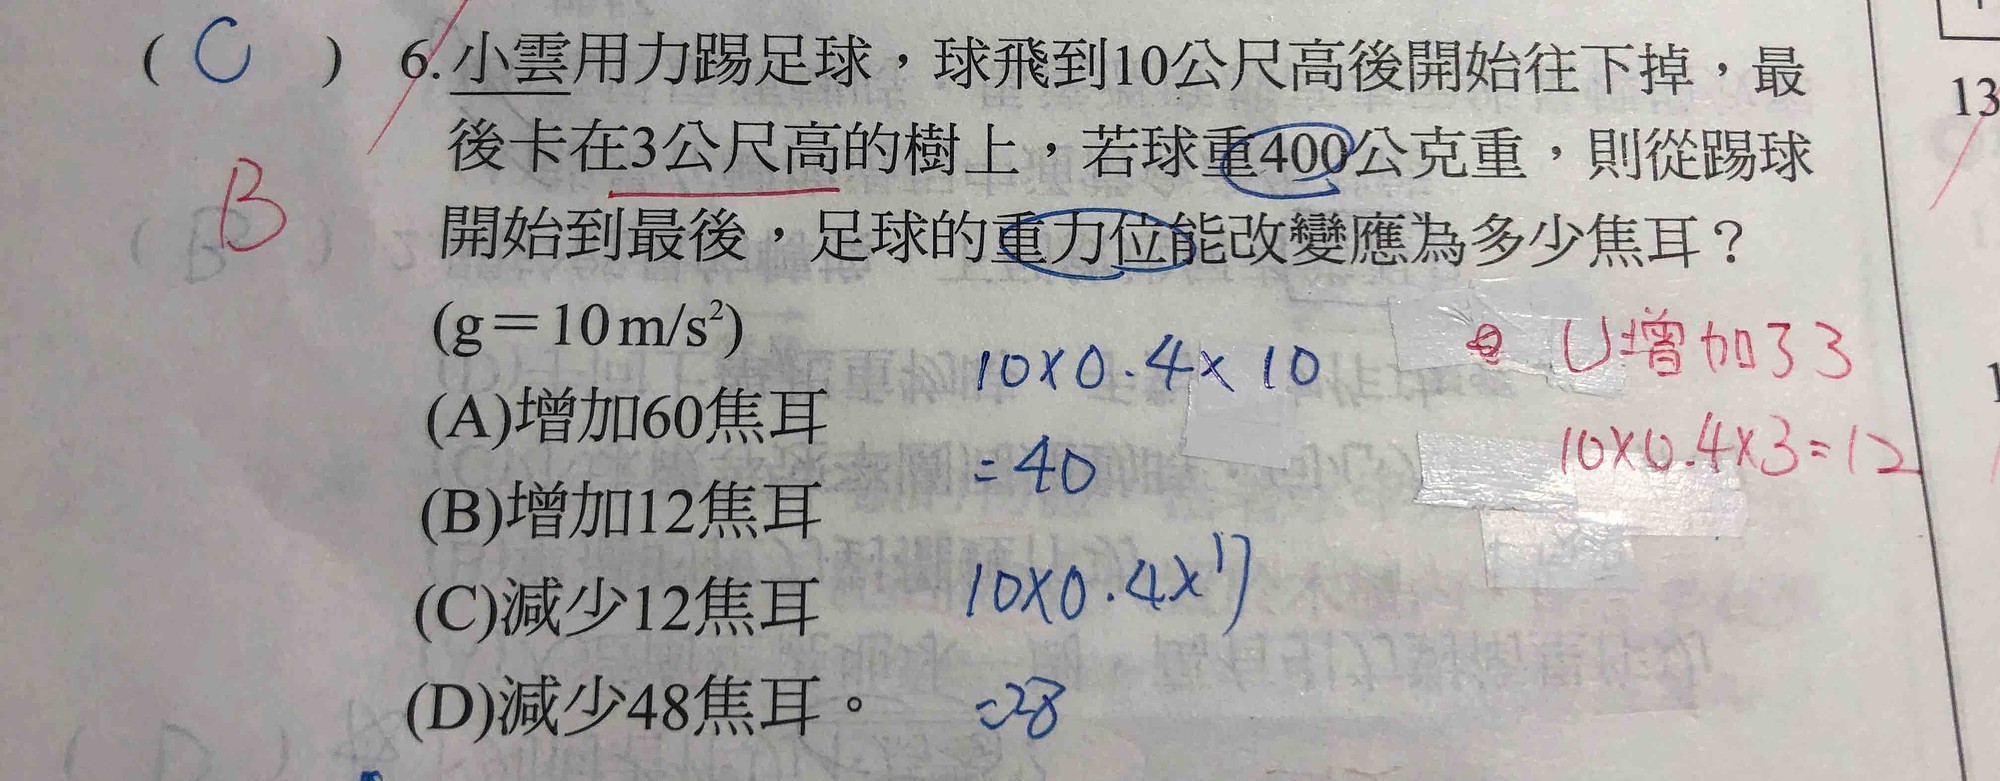 ( C ) 6.小雲用力踢足球，球飛到10公尺高後開始往下掉，最
後卡在3公尺高的樹上，若球重400公克重，則從踢球
B
開始到最後，足球的重力位能改變應為多少焦耳？
(g＝10 m/s²)
(A)增加60焦耳
(B)增加12焦耳
(C)減少12焦耳
(D)減少48焦耳。
10×0.4×10
=40
10×0.4×7
=28
U增加33
10×0.4×3=12
13